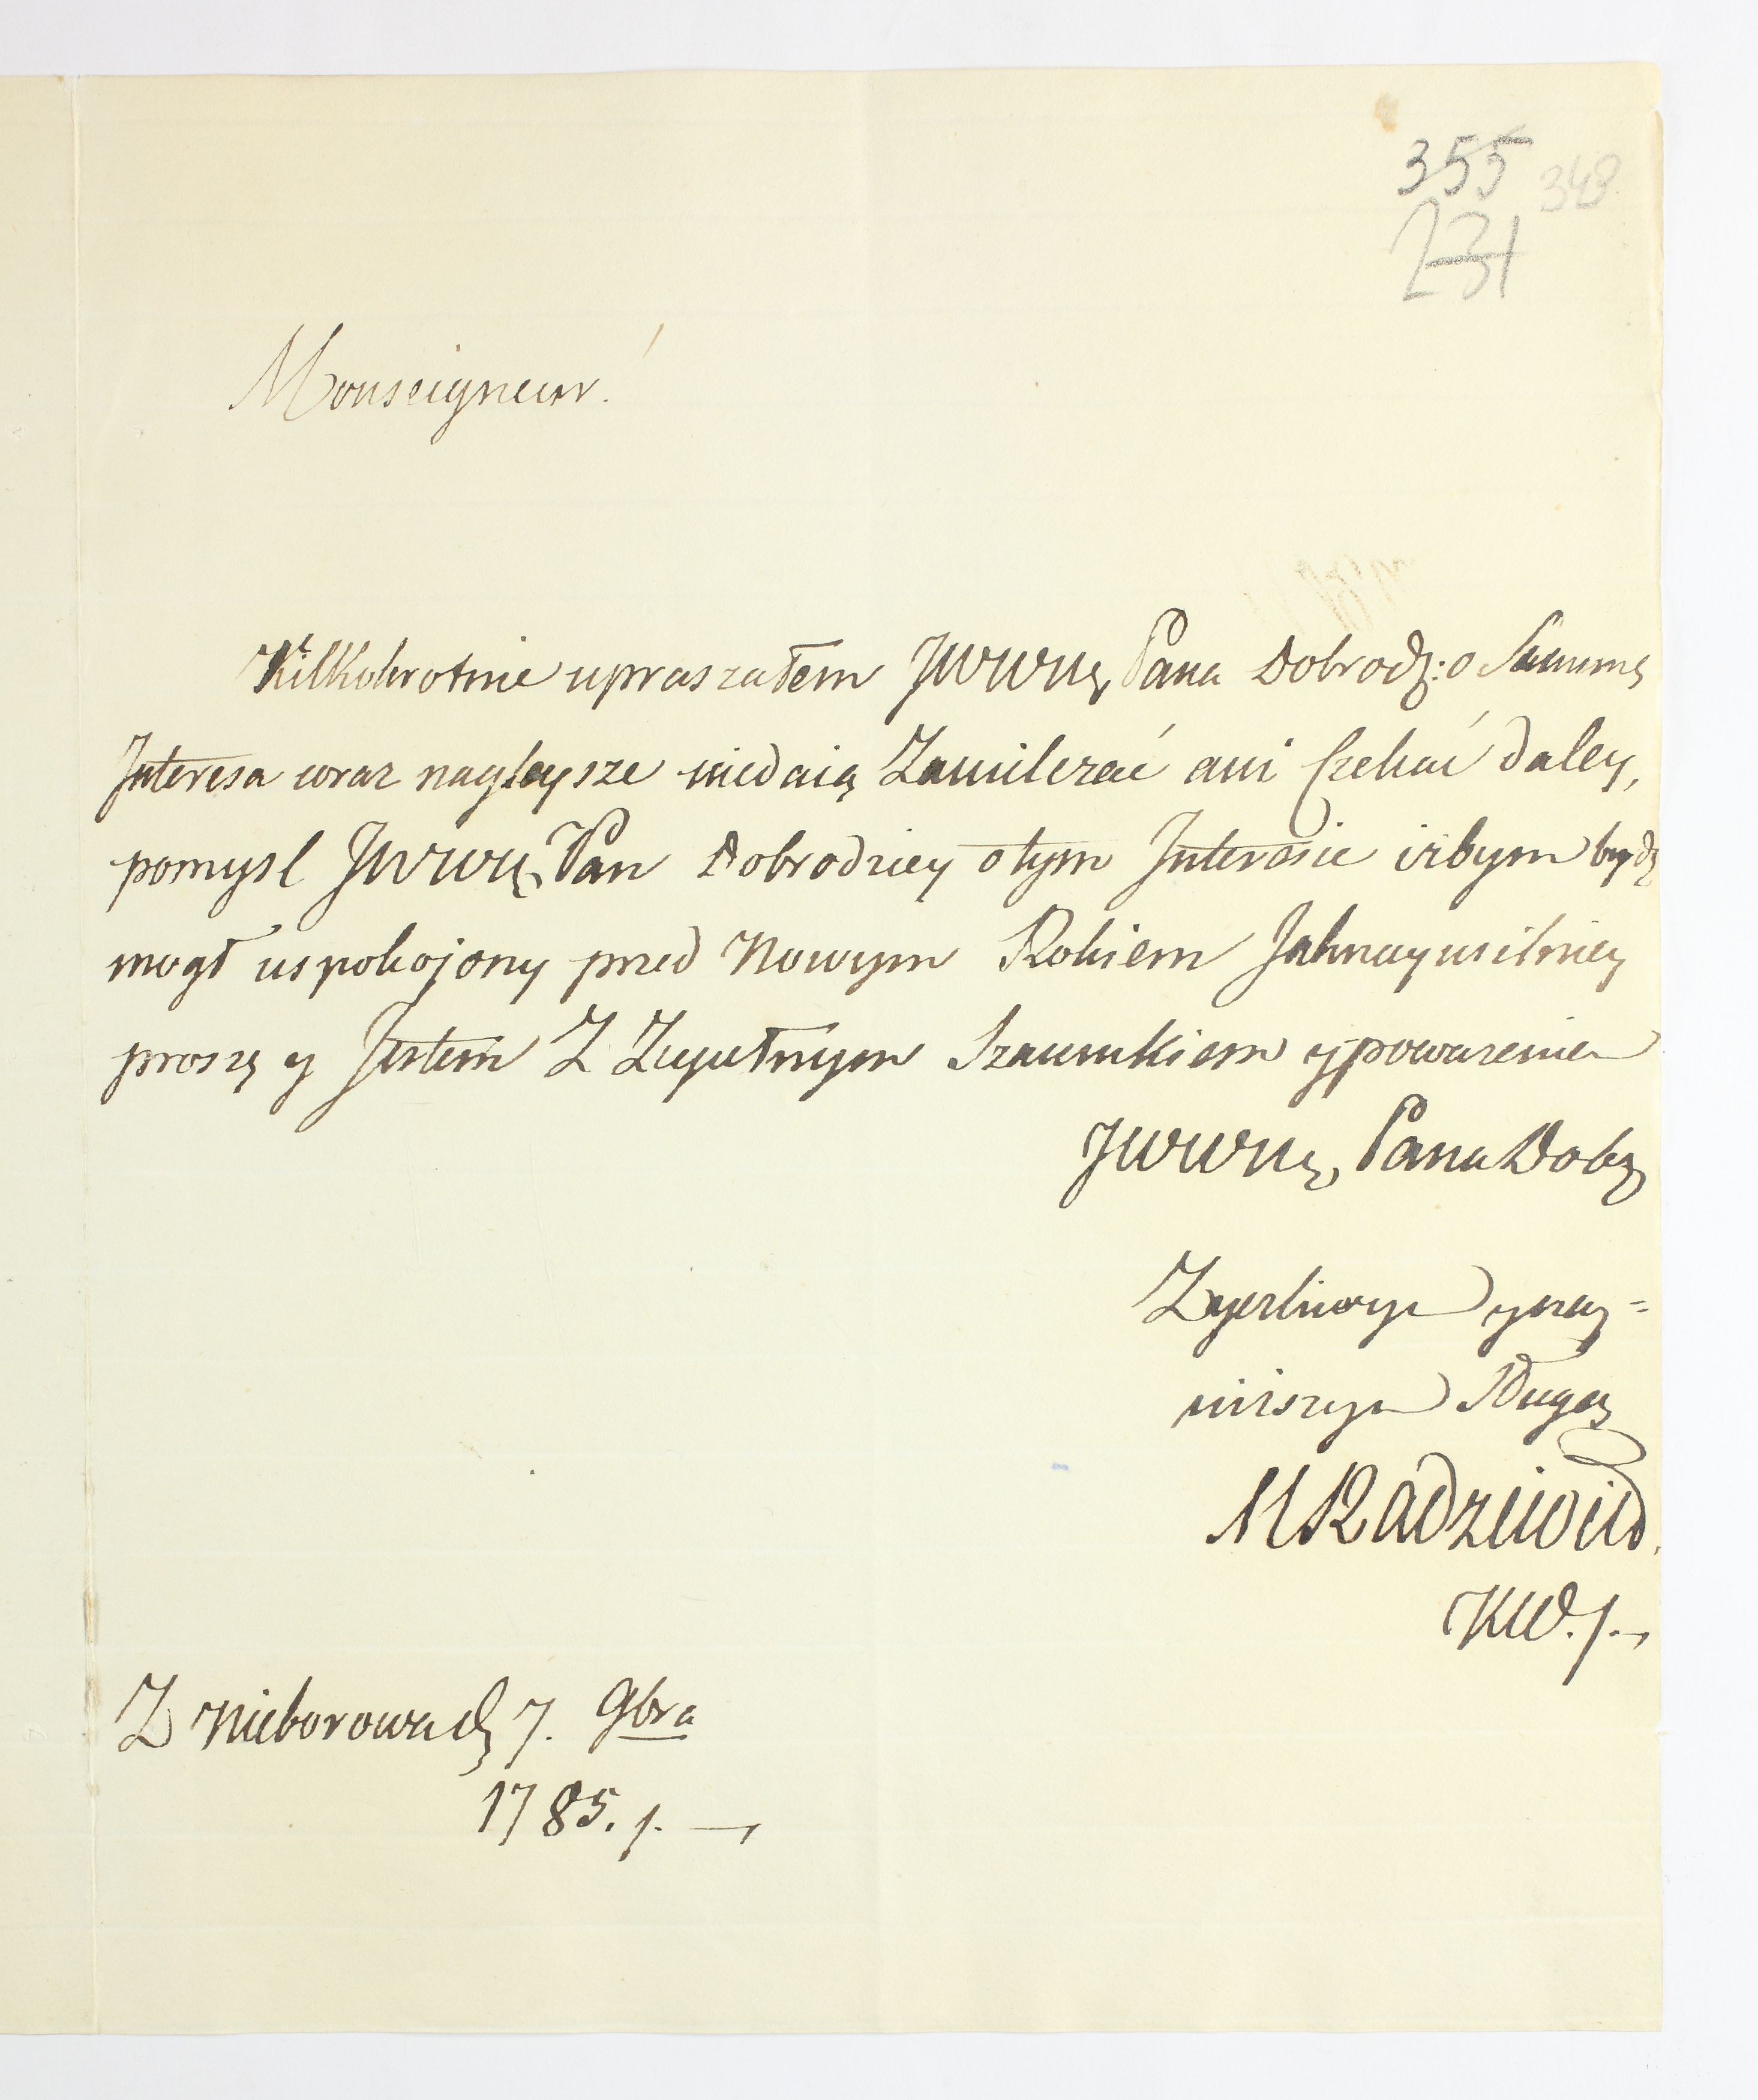 355 349
231
Monseigneur!
Kilkokrotnie upraszałem JWWą Pana Dobrodz: o Summę
Interesa coraz nagleysze niedaią Zamilczeć ani Czekać daley,
pomysl JWWą Pan Dobrodziey o tym Interesie iżbym bydź
mogł uspokojony przed Nowym Rokiem Jaknayusilniey
proszę y Jestem Z Zupełnym Szacunkiem y poważeniem
JWWą Pana Dobr
Zyczliwym y nay=
niższym Sługą
MRadziwiłł.
KW.
Z Nieborowa d 7. 9bra
1785.